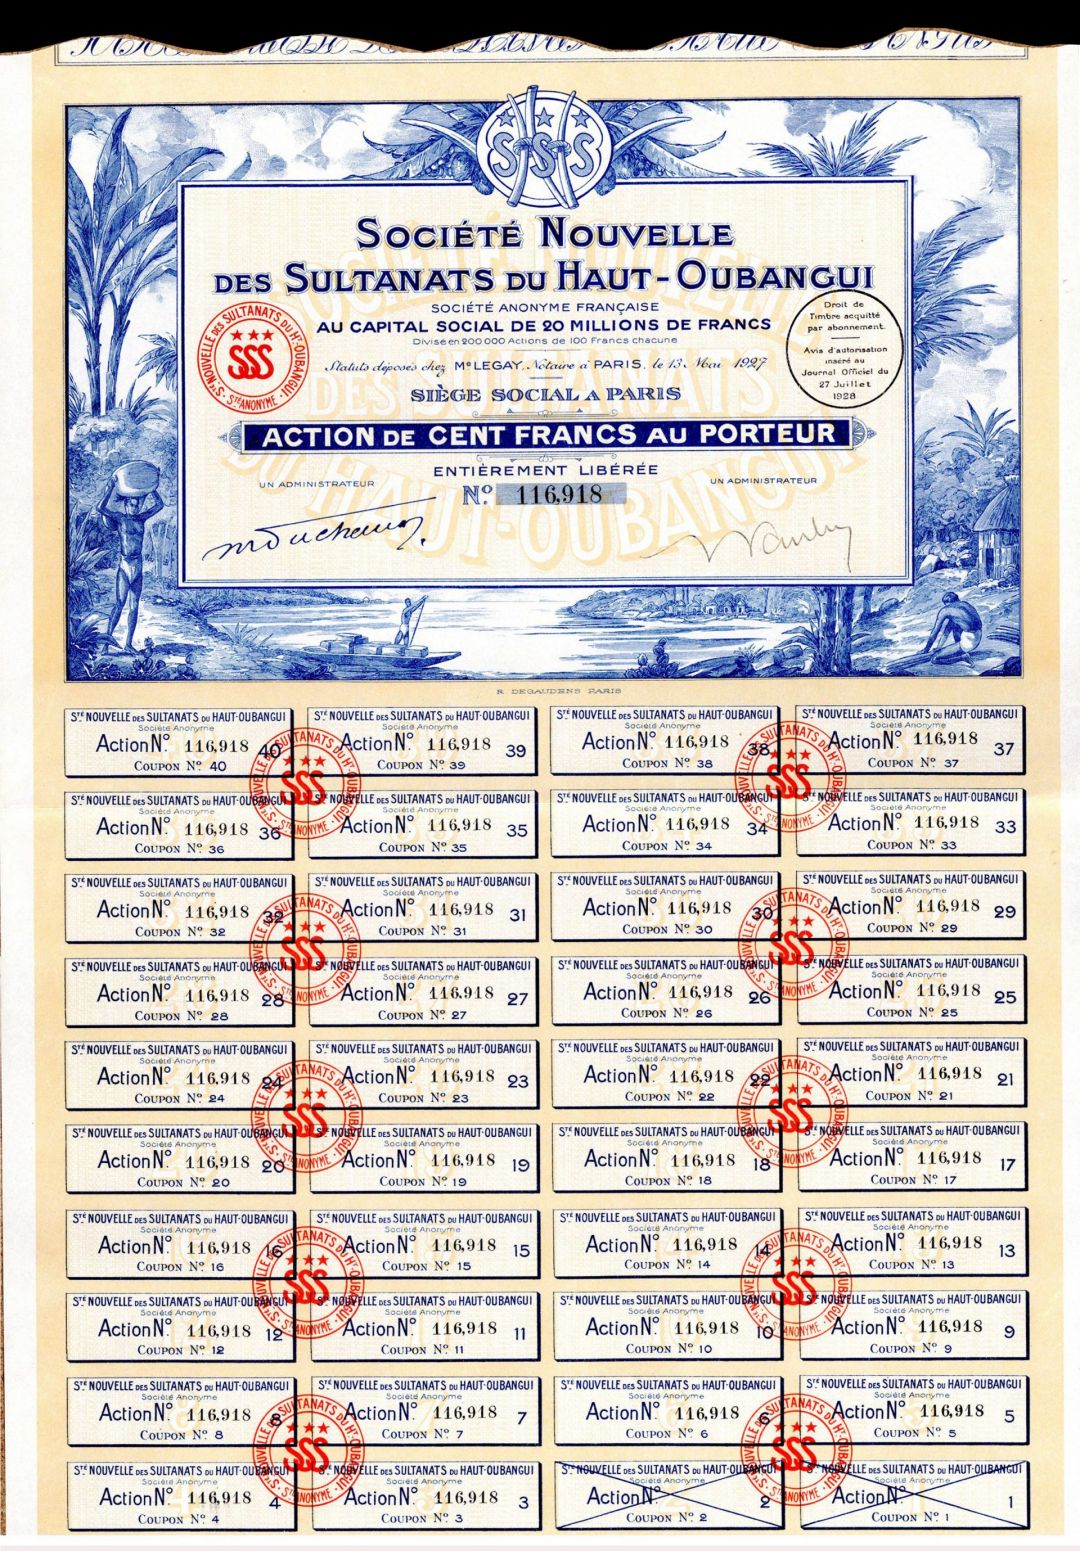 S S S
SOCIÉTÉ NOUVELLE
DES SULTANATS DU HAUT-OUBANGUI
SOCIÉTÉ ANONYME FRANÇAISE
AU CAPITAL SOCIAL DE 20 MILLIONS DE FRANCS
Divisé en 200 000 Actions de 100 Francs chacune
Statuts déposés chez Me LEGAY, Notaire à PARIS, le 13 Mai 1927
SIÈGE SOCIAL A PARIS
ACTION DE CENT FRANCS AU PORTEUR
ENTIÈREMENT LIBÉRÉE
UN ADMINISTRATEUR
No. 116,918
UN ADMINISTRATEUR
Sté NOUVELLE DES SULTANATS DU Ht-OUBANGUI
SSS
Sté ANONYME
Droit de
Timbre acquitté
par abonnement.
Avis d'autorisation
inséré au
Journal Officiel du
27 Juillet
1928
R. DEGAUDENS PARIS
Sté NOUVELLE DES SULTANATS DU HAUT-OUBANGUI
Société Anonyme
Action No. 116,918 40
COUPON No. 40
Sté NOUVELLE DES SULTANATS DU HAUT-OUBANGUI
Société Anonyme
Action No. 116,918 39
COUPON No. 39
Sté NOUVELLE DES SULTANATS DU HAUT-OUBANGUI
Société Anonyme
Action No. 116,918 38
COUPON No. 38
Sté NOUVELLE DES SULTANATS DU HAUT-OUBANGUI
Société Anonyme
Action No. 116,918 37
COUPON No. 37
Sté NOUVELLE DES SULTANATS DU HAUT-OUBANGUI
Société Anonyme
Action No. 116,918 36
COUPON No. 36
Sté NOUVELLE DES SULTANATS DU HAUT-OUBANGUI
Société Anonyme
Action No. 116,918 35
COUPON No. 35
Sté NOUVELLE DES SULTANATS DU HAUT-OUBANGUI
Société Anonyme
Action No. 116,918 34
COUPON No. 34
Sté NOUVELLE DES SULTANATS DU HAUT-OUBANGUI
Société Anonyme
Action No. 116,918 33
COUPON No. 33
Sté NOUVELLE DES SULTANATS DU HAUT-OUBANGUI
Société Anonyme
Action No. 116,918 32
COUPON No. 32
Sté NOUVELLE DES SULTANATS DU HAUT-OUBANGUI
Société Anonyme
Action No. 116,918 31
COUPON No. 31
Sté NOUVELLE DES SULTANATS DU HAUT-OUBANGUI
Société Anonyme
Action No. 116,918 30
COUPON No. 30
Sté NOUVELLE DES SULTANATS DU HAUT-OUBANGUI
Société Anonyme
Action No. 116,918 29
COUPON No. 29
Sté NOUVELLE DES SULTANATS DU HAUT-OUBANGUI
Société Anonyme
Action No. 116,918 28
COUPON No. 28
Sté NOUVELLE DES SULTANATS DU HAUT-OUBANGUI
Société Anonyme
Action No. 116.918 27
COUPON No. 27
Sté NOUVELLE DES SULTANATS DU HAUT-OUBANGUI
Société Anonyme
Action No. 116,918 26
COUPON No. 26
Sté NOUVELLE DES SULTANATS DU HAUT-OUBANGUI
Société Anonyme
Action No. 116,918 25
COUPON No. 25
Sté NOUVELLE DES SULTANATS DU HAUT-OUBANGUI
Société Anonyme
Action No. 116,918 24
COUPON No. 24
Sté NOUVELLE DES SULTANATS DU HAUT-OUBANGUI
Société Anonyme
Action No. 116,918 23
COUPON No. 23
Sté NOUVELLE DES SULTANATS DU HAUT-OUBANGUI
Société Anonyme
Action No. 116,918 22
COUPON No. 22
Sté NOUVELLE DES SULTANATS DU HAUT-OUBANGUI
Société Anonyme
Action No. 116,918 21
COUPON No. 21
Sté NOUVELLE DES SULTANATS DU HAUT-OUBANGUI
Société Anonyme
Action No. 116,918 20
COUPON No. 20
Sté NOUVELLE DES SULTANATS DU HAUT-OUBANGUI
Société Anonyme
Action No. 116,918 19
COUPON No. 19
Sté NOUVELLE DES SULTANATS DU HAUT-OUBANGUI
Société Anonyme
Action No. 116,918 18
COUPON No. 18
Sté NOUVELLE DES SULTANATS DU HAUT-OUBANGUI
Société Anonyme
Action No. 116,918 17
COUPON No. 17
Sté NOUVELLE DES SULTANATS DU HAUT-OUBANGUI
Société Anonyme
Action No. 116,918 16
COUPON No. 16
Sté NOUVELLE DES SULTANATS DU HAUT-OUBANGUI
Société Anonyme
Action No. 116,918 15
COUPON No. 15
Sté NOUVELLE DES SULTANATS DU HAUT-OUBANGUI
Société Anonyme
Action No. 116,918 14
COUPON No. 14
Sté NOUVELLE DES SULTANATS DU HAUT-OUBANGUI
Société Anonyme
Action No. 116,918 13
COUPON No. 13
Sté NOUVELLE DES SULTANATS DU HAUT-OUBANGUI
Société Anonyme
Action No. 116,918 12
COUPON No. 12
Sté NOUVELLE DES SULTANATS DU HAUT-OUBANGUI
Société Anonyme
Action No. 116,918 11
COUPON No. 11
Sté NOUVELLE DES SULTANATS DU HAUT-OUBANGUI
Société Anonyme
Action No. 116,918 10
COUPON No. 10
Sté NOUVELLE DES SULTANATS DU HAUT-OUBANGUI
Société Anonyme
Action No. 116,918 9
COUPON No. 9
Sté NOUVELLE DES SULTANATS DU HAUT-OUBANGUI
Société Anonyme
Action No. 116,918 8
COUPON No. 8
Sté NOUVELLE DES SULTANATS DU HAUT-OUBANGUI
Société Anonyme
Action No. 116,918 7
COUPON No. 7
Sté NOUVELLE DES SULTANATS DU HAUT-OUBANGUI
Société Anonyme
Action No. 116,918 6
COUPON No. 6
Sté NOUVELLE DES SULTANATS DU HAUT-OUBANGUI
Société Anonyme
Action No. 116,918 5
COUPON No. 5
Sté NOUVELLE DES SULTANATS DU HAUT-OUBANGUI
Société Anonyme
Action No. 116,918 4
COUPON No. 4
Sté NOUVELLE DES SULTANATS DU HAUT-OUBANGUI
Société Anonyme
Action No. 116,918 3
COUPON No. 3
Sté NOUVELLE DES SULTANATS DU HAUT-OUBANGUI
Société Anonyme
Action No. 2
COUPON No. 2
Sté NOUVELLE DES SULTANATS DU HAUT-OUBANGUI
Société Anonyme
Action No. 1
COUPON No. 1